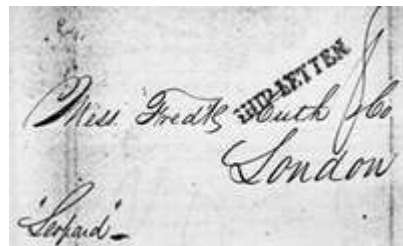 SHIP-LETTER
Mess Fredk Huth & Co
London
"Leopard"